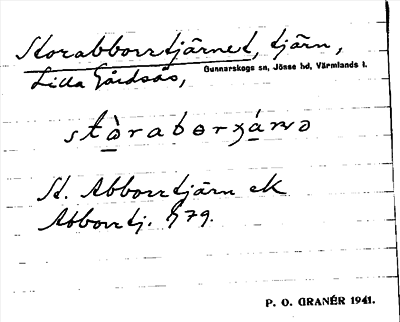 Storabborrtjärnet, tjärn,
Lilla Gårdsås, Gunnarskogs sn, Jösse hd, Värmlands l.
stòraborɟánə
St. Abborrtjärn ek
Abborrtj. G79.
P. O. GRANÉR 1941.